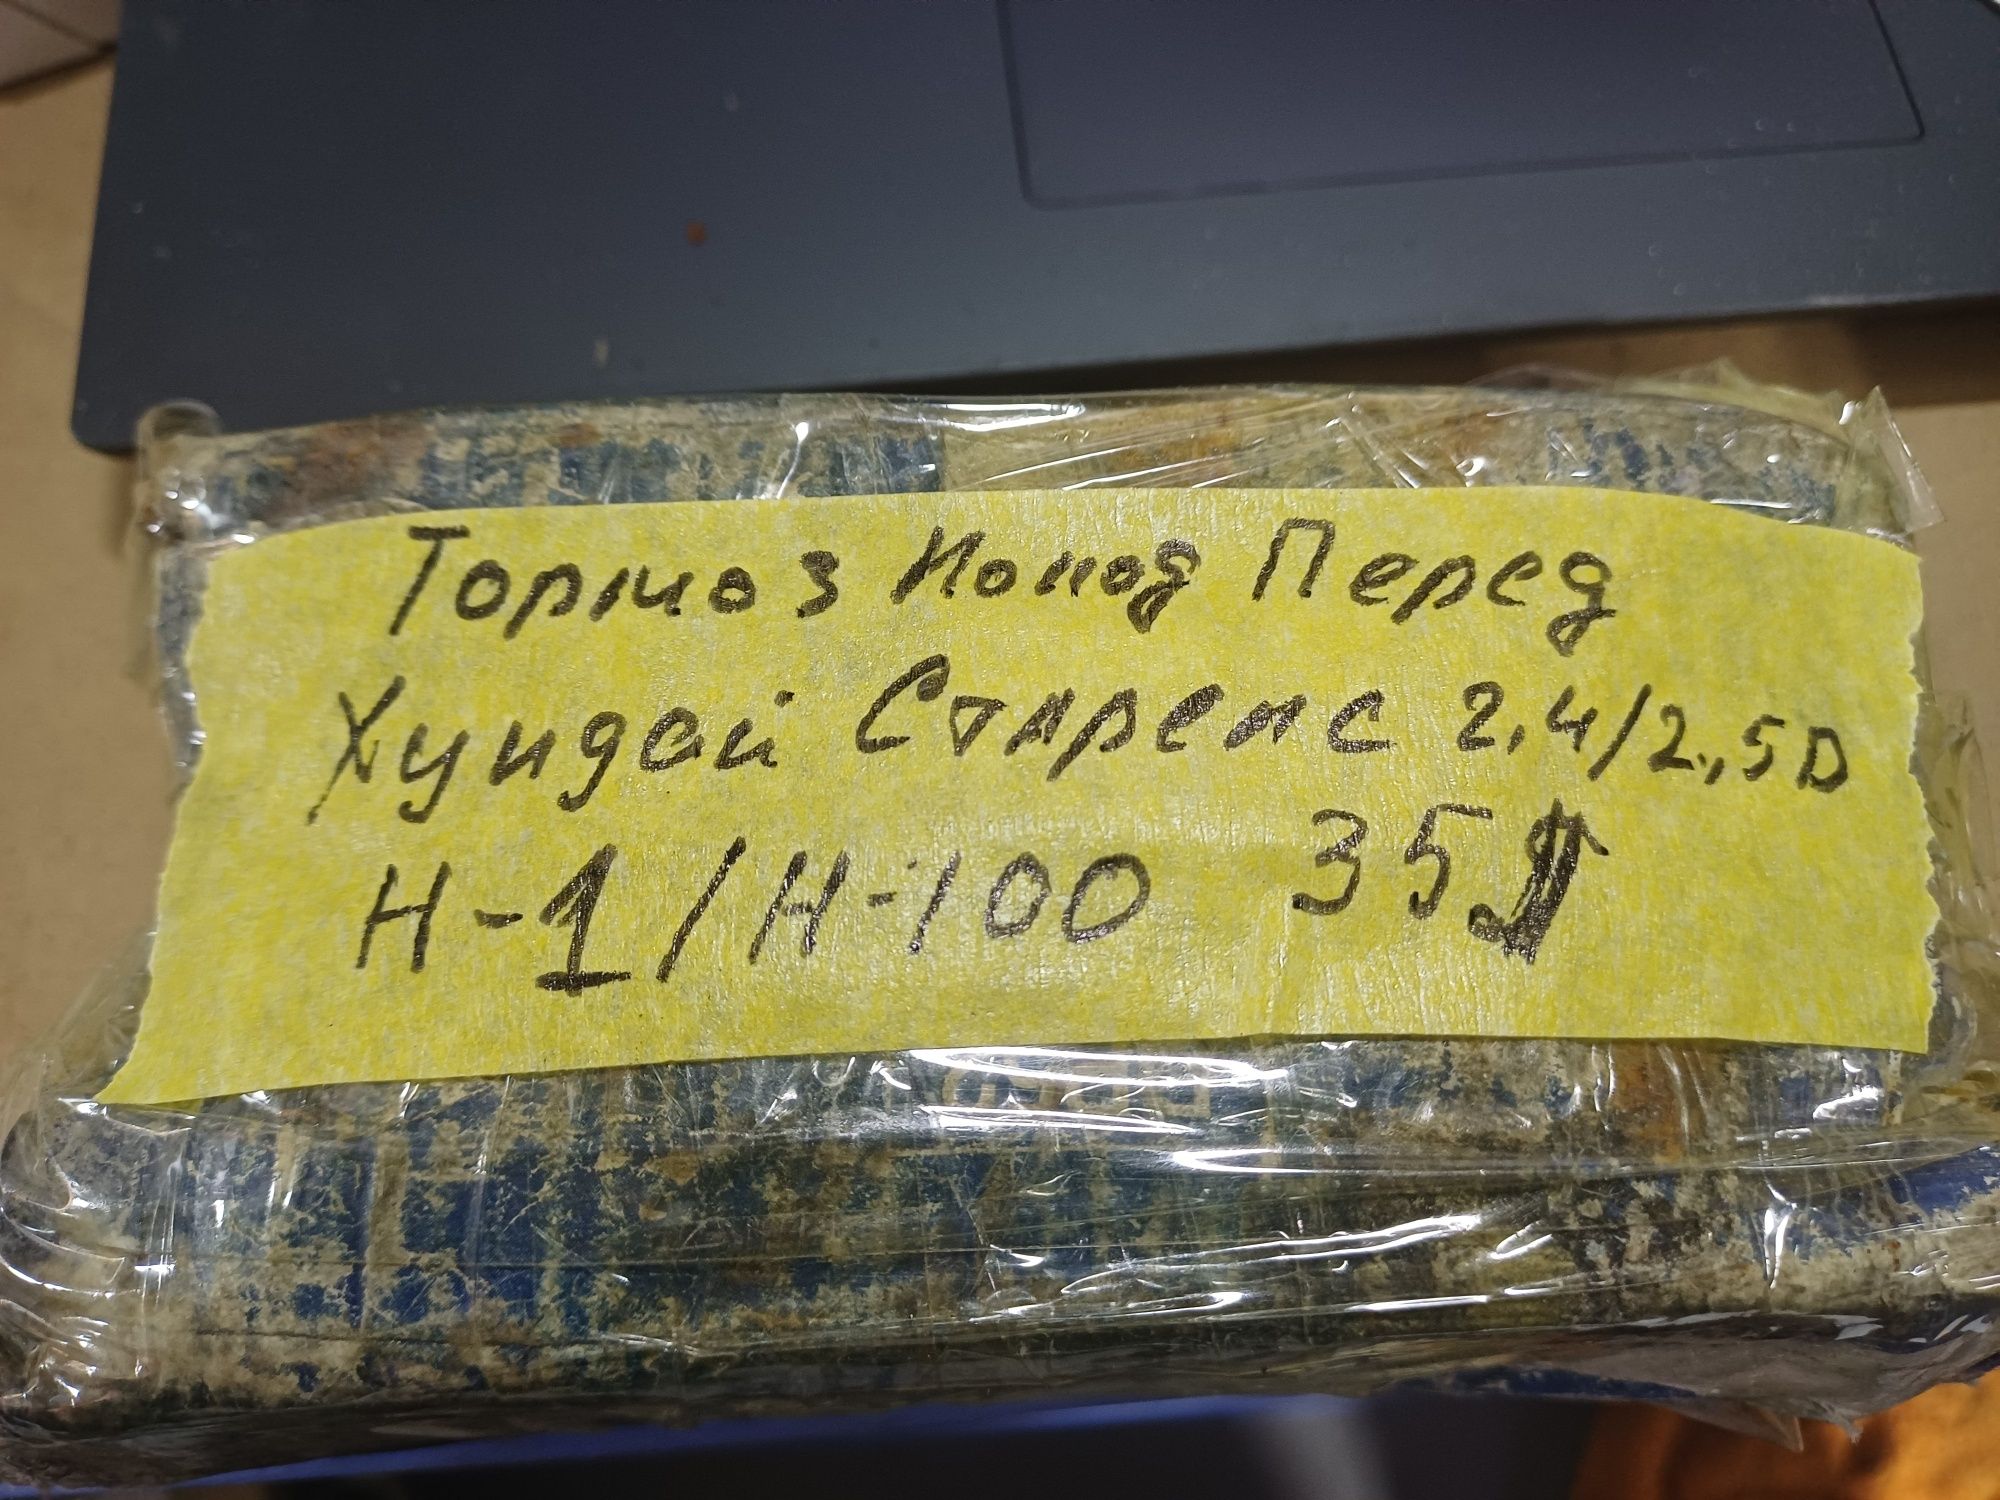 Тормоз Колод Перед
Хундай Старекс 2,4/2,5D
H-1/H-100 35$